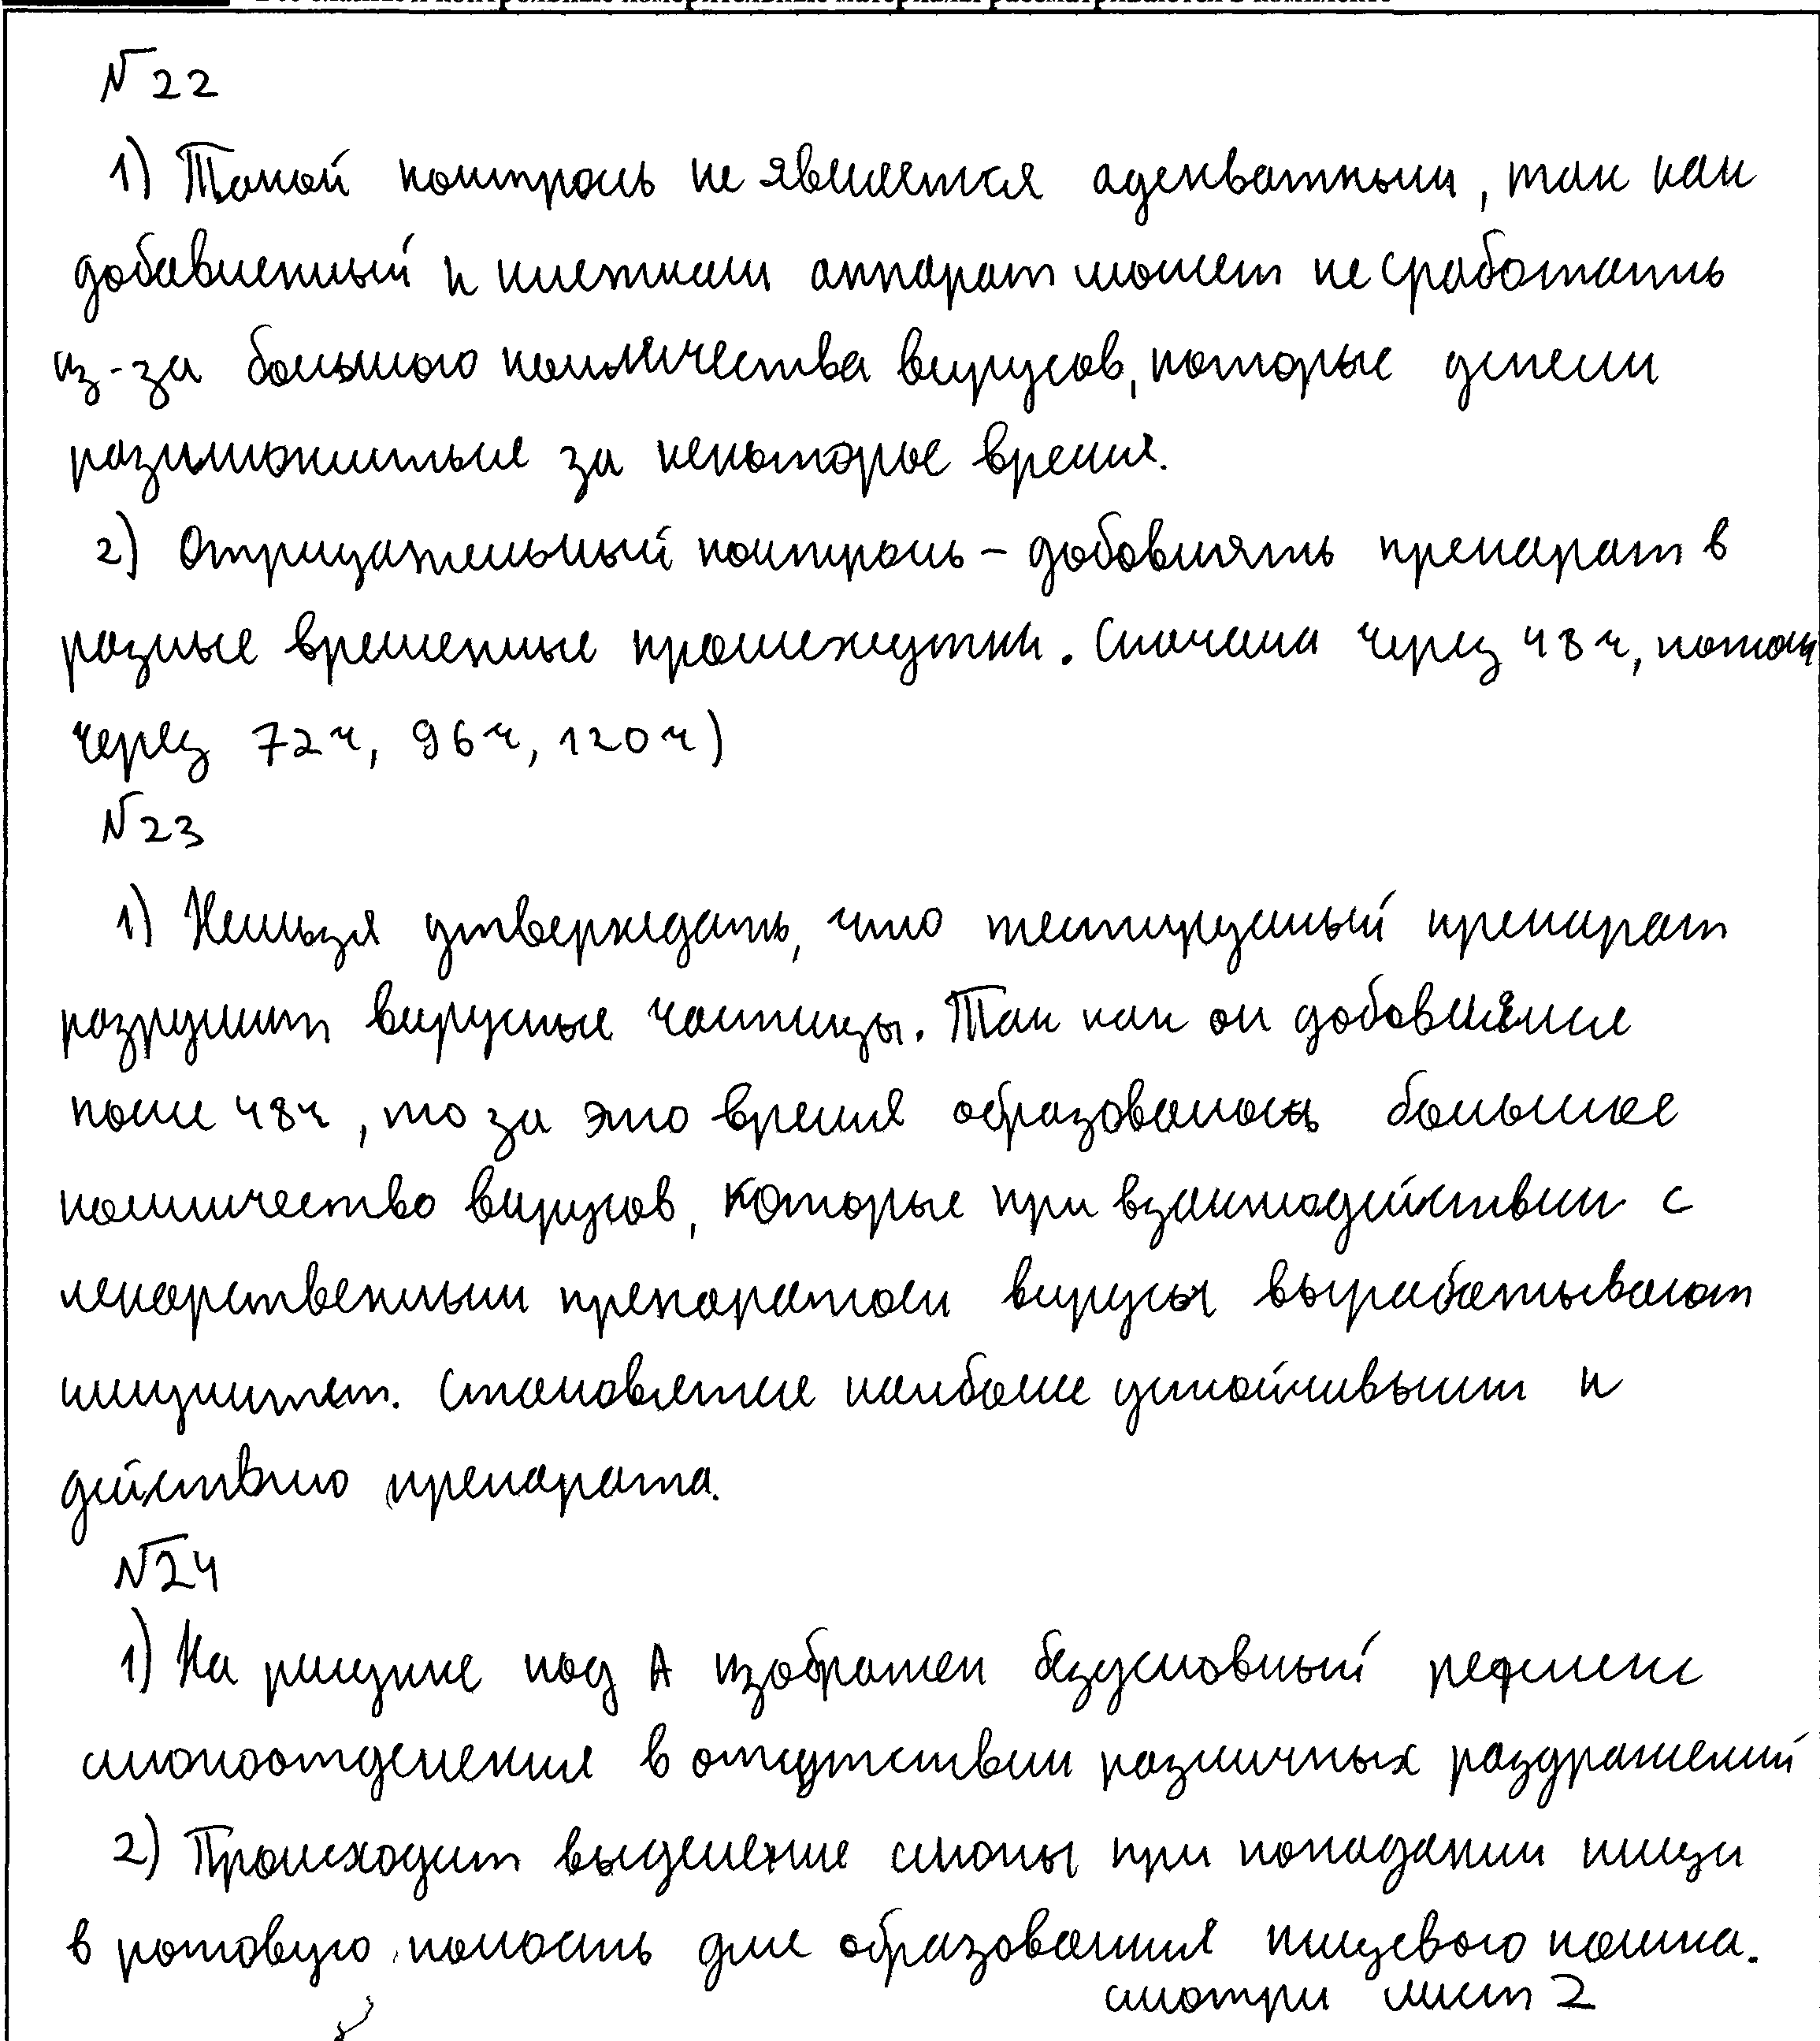 № 22
1) Такой контроль не является адекватным, так как
добавленный к клеткам аппарат может не сработать
из-за большого колличества вирусов, которые успели
размножиться за некоторое время.
2) Отрицательный контроль – добовлять препарат в
разные временные промежутки. Сначала через 48 ч, потом
через 72 ч, 96 ч, 120 ч)
№ 23
1) Нельзя утверждать, что тестируемый препарат
разрушит вирусные частицы. Так как он добовлялся
после 48ч, то за это время образовалось большое
колличество вирусов, которые при взаимодействии с
лекарственным препаратом вирусы вырабатывают
иммунитет. Становятся наиболее устойчивыми к
действию препарата.
№ 24
1) На рисунке под А изображен безусловный рефлекс
слюноотделения в отсутствии различных раздражений
2) Происходит выделение слюны при попадании пищи
в ротовую полость для образования пищевого комка.
смотри лист 2